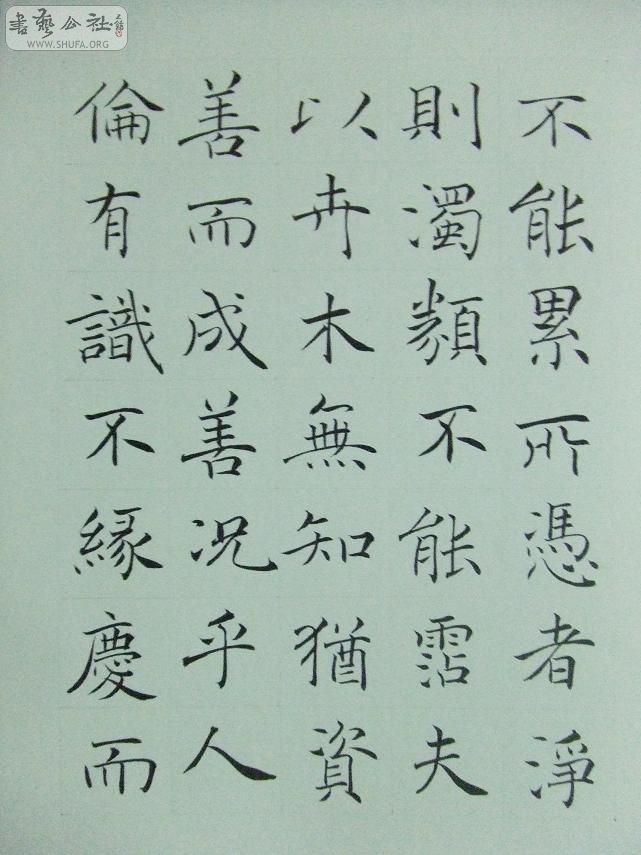 書藝公社
WWW.SHUFA.ORG
不能累所憑者淨
則濁類不能霑夫
以卉木無知猶資
善而成善況乎人
倫有識不緣慶而